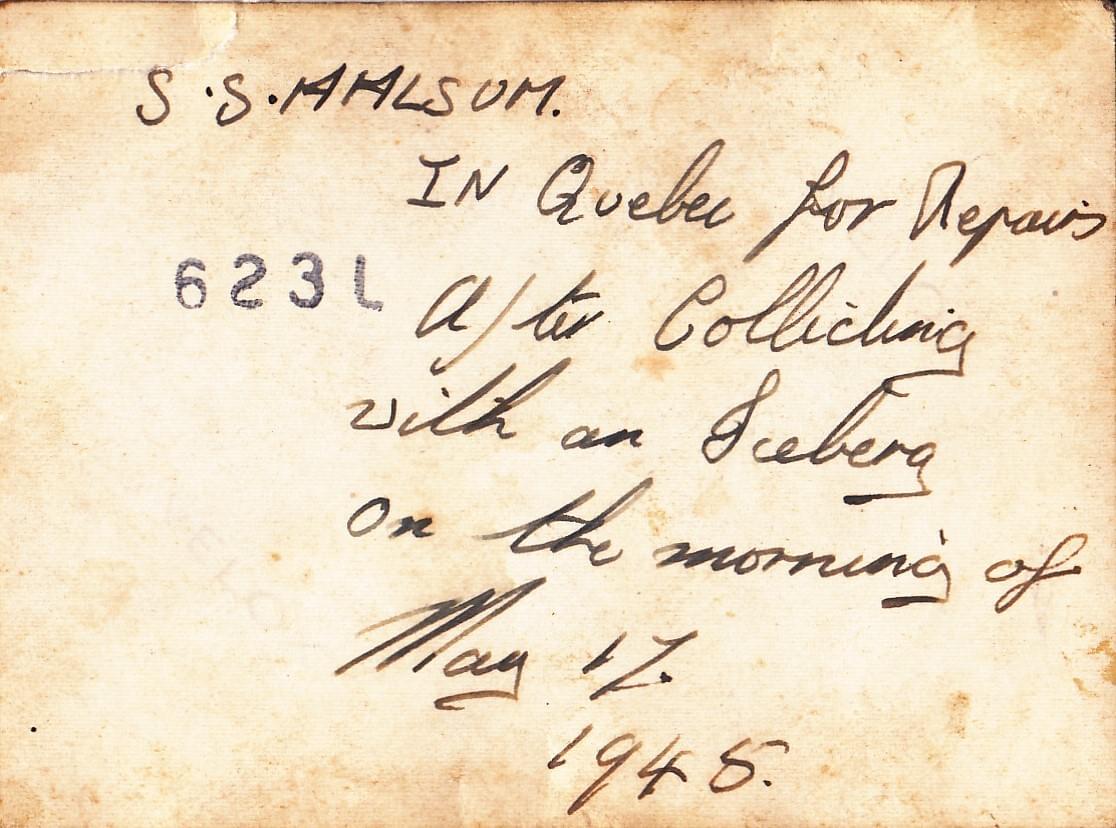 S.S. AALSUM.
IN Quebec for Repairs
6231 After Colliding
with an Iceberg
on the morning of
May 17.
1945.